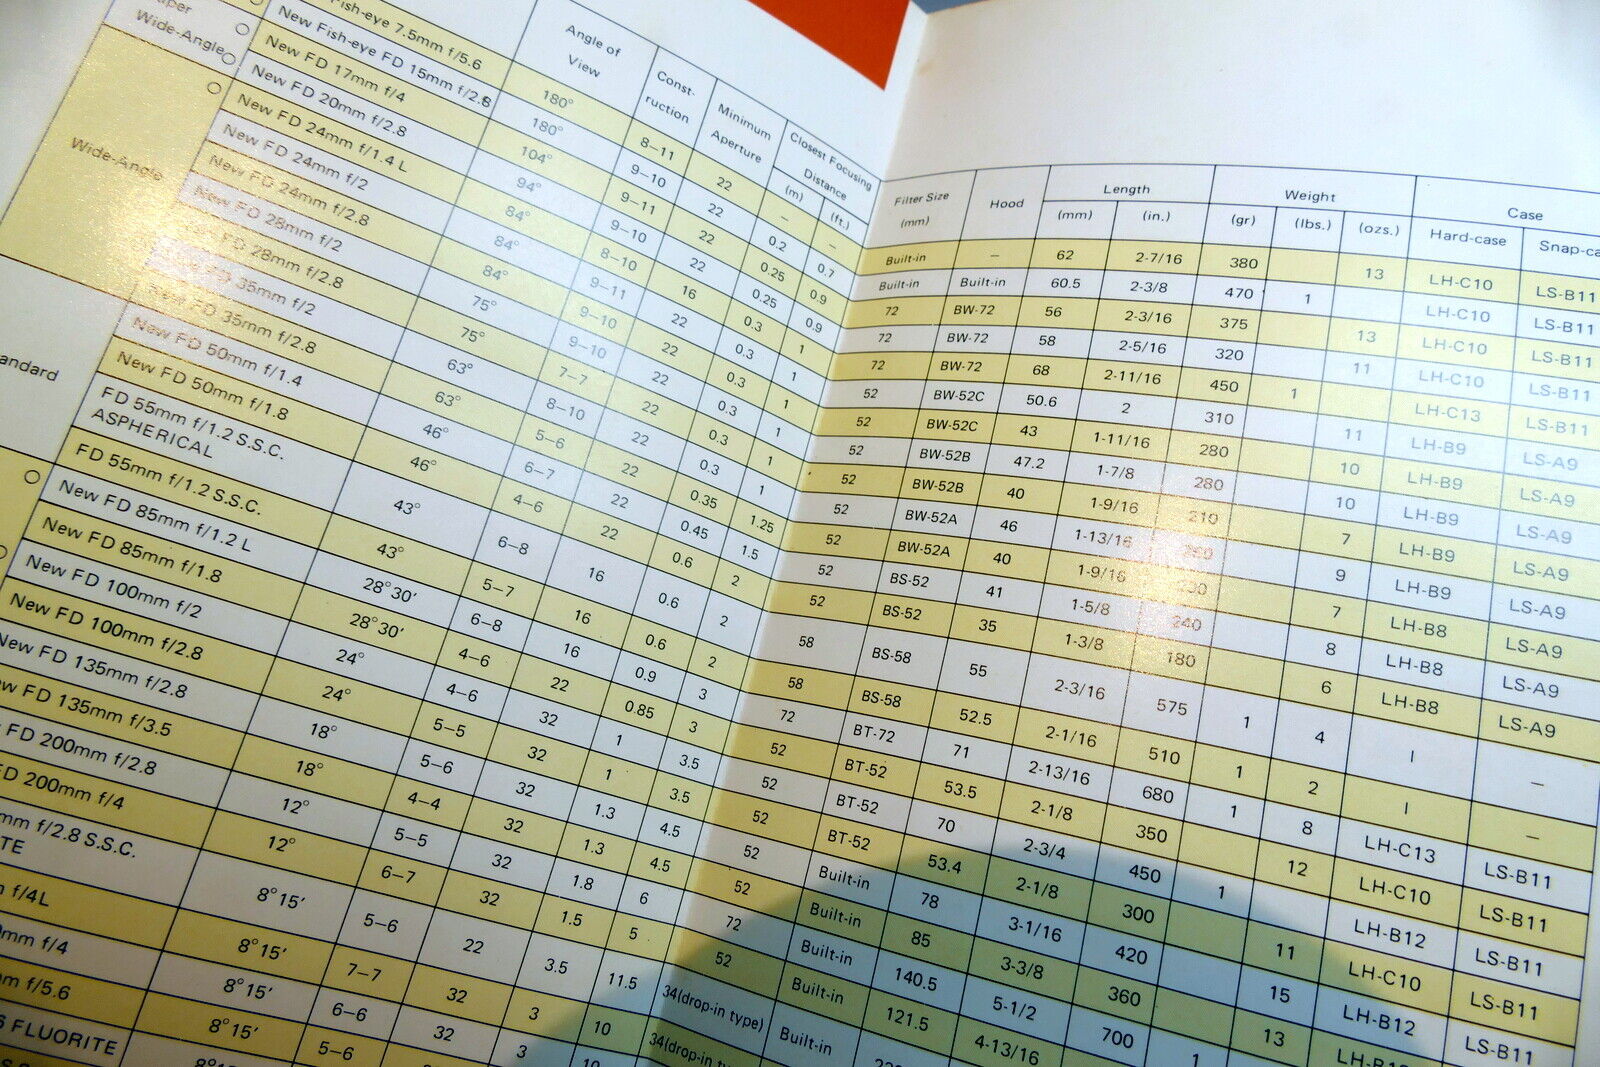 Wide-Angle
Wide-Angle
Fish-eye 7.5mm f/5.6 180° 8–11 22 –
New Fish-eye FD 15mm f/2.8 180° 9–10 22 0.2 0.7
New FD 17mm f/4 104° 9–11 22 0.25 0.9
New FD 20mm f/2.8 94° 9–10 22 0.25 0.9
New FD 24mm f/1.4 L 84° 8–10 16 0.3 1
New FD 24mm f/2 84° 9–11 22 0.3 1
New FD 24mm f/2.8 84° 9–10 22 0.3 1
New FD 28mm f/2 75° 9–10 22 0.3 1
New FD 28mm f/2.8 75° 7–7 22 0.3 1
New FD 35mm f/2 63° 8–10 22 0.3 1
New FD 35mm f/2.8 63° 5–6 22 0.35 1.25
New FD 50mm f/1.4 46° 6–7 22 0.45 1.5
New FD 50mm f/1.8 46° 4–6 22 0.6 2
FD 55mm f/1.2 S.S.C.
ASPHERICAL 43° 6–8 16 0.6 2
FD 55mm f/1.2 S.S.C. 43° 5–7 16 0.6 2
New FD 85mm f/1.2 L 28°30′ 6–8 16 0.9 3
New FD 85mm f/1.8 28°30′ 4–6 22 0.85 3
New FD 100mm f/2 24° 4–6 32 1 3.5
New FD 100mm f/2.8 24° 5–5 32 1 3.5
New FD 135mm f/2.8 18° 5–6 32 1.3 4.5
FD 135mm f/3.5 18° 4–4 32 1.3 4.5
FD 200mm f/2.8 12° 5–5 32 1.8 6
FD 200mm f/4 12° 6–7 32 1.5 5
mm f/2.8 S.S.C. 8°15′ 5–6 22 3.5 11.5
f/4L 8°15′ 7–7 32 3 10
mm f/4 8°15′ 6–6 32 3 10
f/5.6 8°15′ 5–6
FLUORITE
Angle of
View
Const-
ruction
Minimum
Aperture
Closest Focusing
Distance
(m) (ft.)
Filter Size
(mm)
Hood
Length
(mm) (in.)
Weight
(gr) (lbs.) (ozs.)
Case
Hard-case Snap-ca
Built-in – 62 2-7/16 380 13 LH-C10 LS-B11
Built-in Built-in 60.5 2-3/8 470 1 LH-C10 LS-B11
72 BW-72 56 2-3/16 375 13 LH-C10 LS-B11
72 BW-72 58 2-5/16 320 11 LH-C10 LS-B11
72 BW-72 68 2-11/16 450 1 LH-C13 LS-B11
52 BW-52C 50.6 2 310 11 LH-B9 LS-A9
52 BW-52C 43 1-11/16 280 10 LH-B9 LS-A9
52 BW-52B 47.2 1-7/8 280 10 LH-B9 LS-A9
52 BW-52B 40 1-9/16 210 7 LH-B9 LS-A9
52 BW-52A 46 1-13/16 260 9 LH-B9 LS-A9
52 BW-52A 40 1-9/16 7 LH-B8 LS-A9
52 BS-52 41 1-5/8 240 8 LH-B8 LS-A9
52 BS-52 35 1-3/8 180 6 LH-B8 LS-A9
58 BS-58 55 2-3/16 575 1 4 I –
58 BS-58 52.5 2-1/16 510 1 2 I –
72 BT-72 71 2-13/16 680 1 8 LH-C13 LS-B11
52 BT-52 53.5 2-1/8 350 12 LH-C10 LS-B11
52 BT-52 70 2-3/4 450 1 LH-B12 LS-B11
52 BT-52 53.4 2-1/8 300 11 LH-C10 LS-B11
52 Built-in 78 3-1/16 420 15 LH-B12 LS-B11
52 Built-in 85 3-3/8 360 13
72 Built-in 140.5 5-1/2 700 1
52 Built-in 121.5 4-13/16
34(drop-in type) Built-in